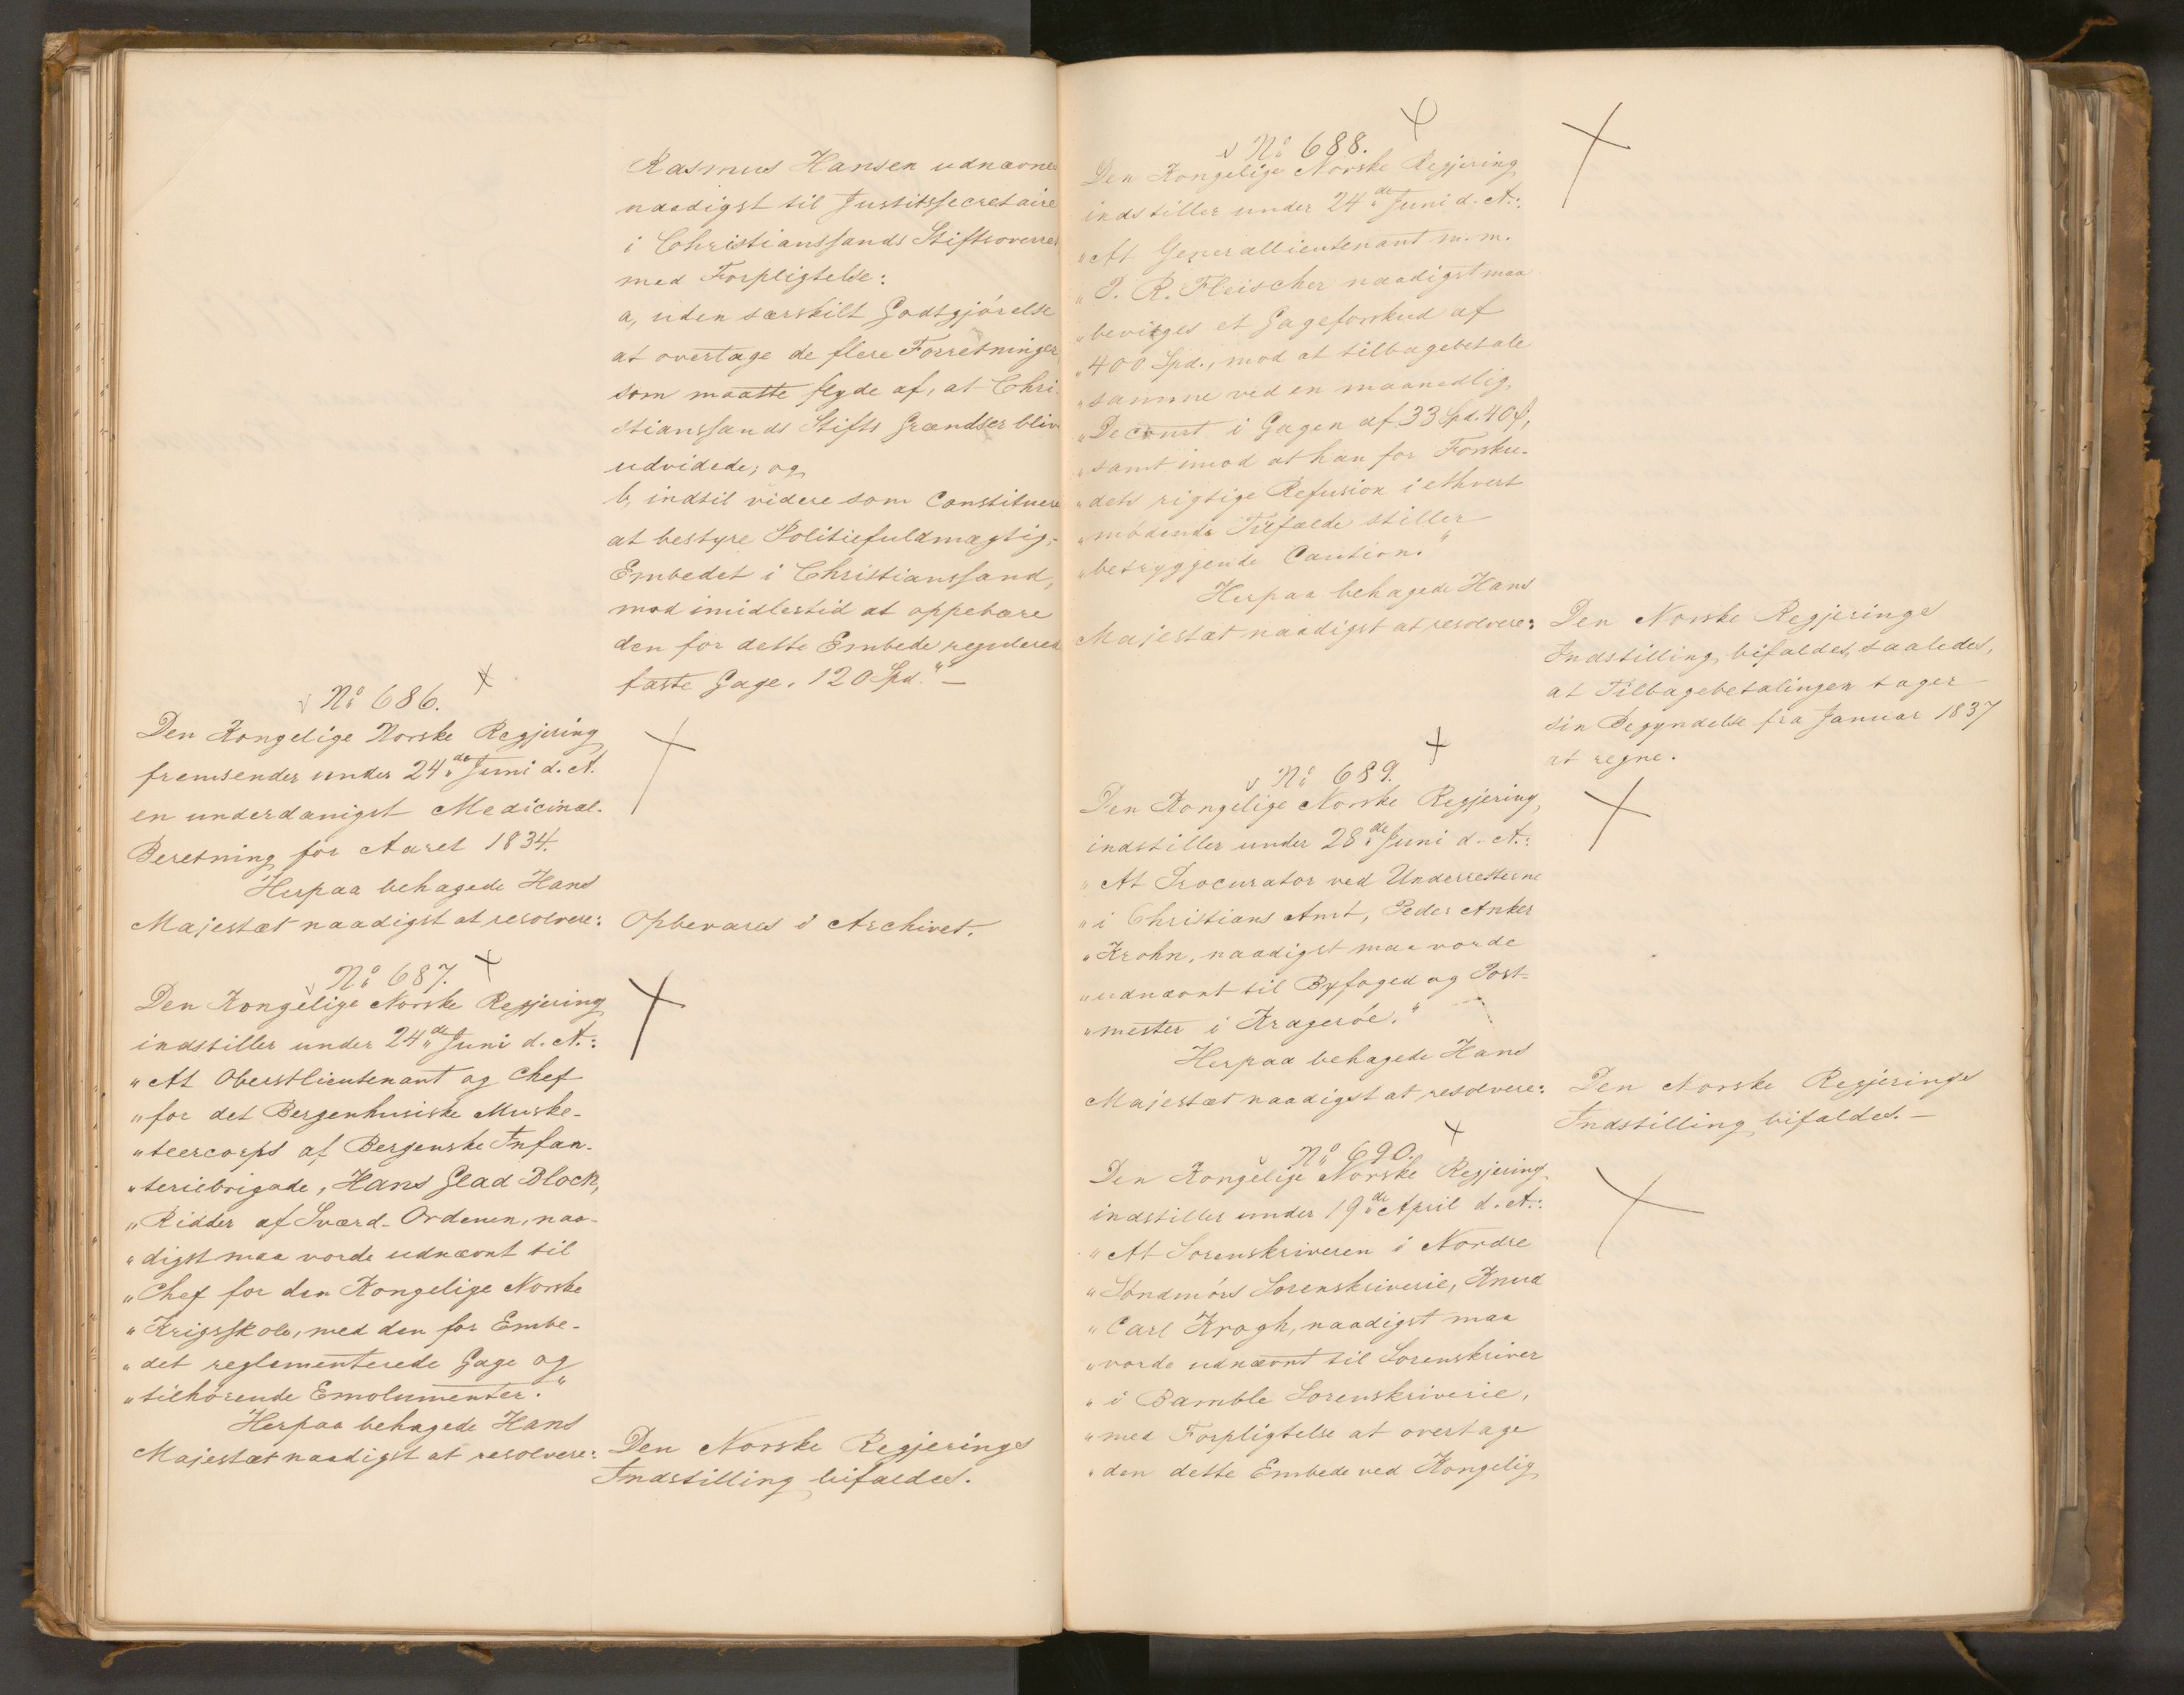 Rasmus Hansen udnævnes
naadigst til Justitssecretaire
i Christianssands Stiftsoverret
med Forpligtelse:
a, uden særskilt Godtgjörelse
at overtage de flere Forretninger
som maatte flyde af, at Chri-
stianssands Stifts Grændser blive
udvidede; og
b, indtil videre som Constitueret
at bestyre Politiefuldmægtig-
Embedet i Christianssand,
mod imidlertid at oppebære
den for dette Embede regulerede
faste Gage, 120 Spd." —
No 686.
Den Kongelige Norske Regjering
fremsender under 24de Juni d. A.
en underdanigst Medicinal-
Beretning for Aaret 1834.
Herpaa behagede Hans
Majestæt naadigst at resolvere:
Opbevares i Archivet.
No 687.
Den Kongelige Norske Regjering
indstiller under 24de Juni d. A.:
"At Oberstlieutenant og Chef
"for det Bergenhusiske Muske-
"teercorps af Bergenske Infan-
"teriebrigade, Hans Glad Block,
"Ridder af Sværd-Ordenen, naa-
"digst maa vorde udnævnt til
"Chef for den Kongelige Norske
"Krigsskole, med den for Embe-
"det reglementerede Gage og
"tilhörende Emolumenter."
Herpaa behagede Hans
Majestæt naadigst at resolvere:
Den Norske Regjerings
Indstilling bifaldes.
No 688.
Den Kongelige Norske Regjering
indstiller under 24de Juni d. A.:
"At Generallieutenant m. m.
"P. R. Fleischer naadigst maa
"bevilges et Gageforskud af
"400 Spd., mod at tilbagebetale
"samme ved en maanedlig
"Decourt i Gagen af 33 Spd. 40 ß,
"samt imod at han for Forsku-
"dets rigtige Refusion i ethvert
"mödende Tilfælde stiller
"betryggende Caution."
Herpaa behagede Hans
Majestæt naadigst at resolvere:
Den Norske Regjerings
Indstilling bifaldes, saaledes,
at Tilbagebetalingen tager
sin Begyndelse fra Januar 1837
at regne.
No 689.
Den Kongelige Norske Regjering
indstiller under 28de Juni d. A.:
"At Procurator ved Underretterne
"i Christians Amt, Peder Anker
"Krohn, naadigst maa vorde
"udnævnt til Byfoged og Post-
"mester i Krageröe."
Herpaa behagede Hans
Majestæt naadigst at resolvere:
Den Norske Regjerings
Indstilling bifaldes. —
No 690.
Den Kongelige Norske Regjering
indstiller under 19de April d. A.:
"At Sorenskriveren i Nordre
"Söndmörs Sorenskriverie, Knud
"Carl Krogh, naadigst maa
"vorde udnævnt til Sorenskriver
"i Bamble Sorenskriverie,
"med Forpligtelse at overtage
"den dette Embede ved Kongelig